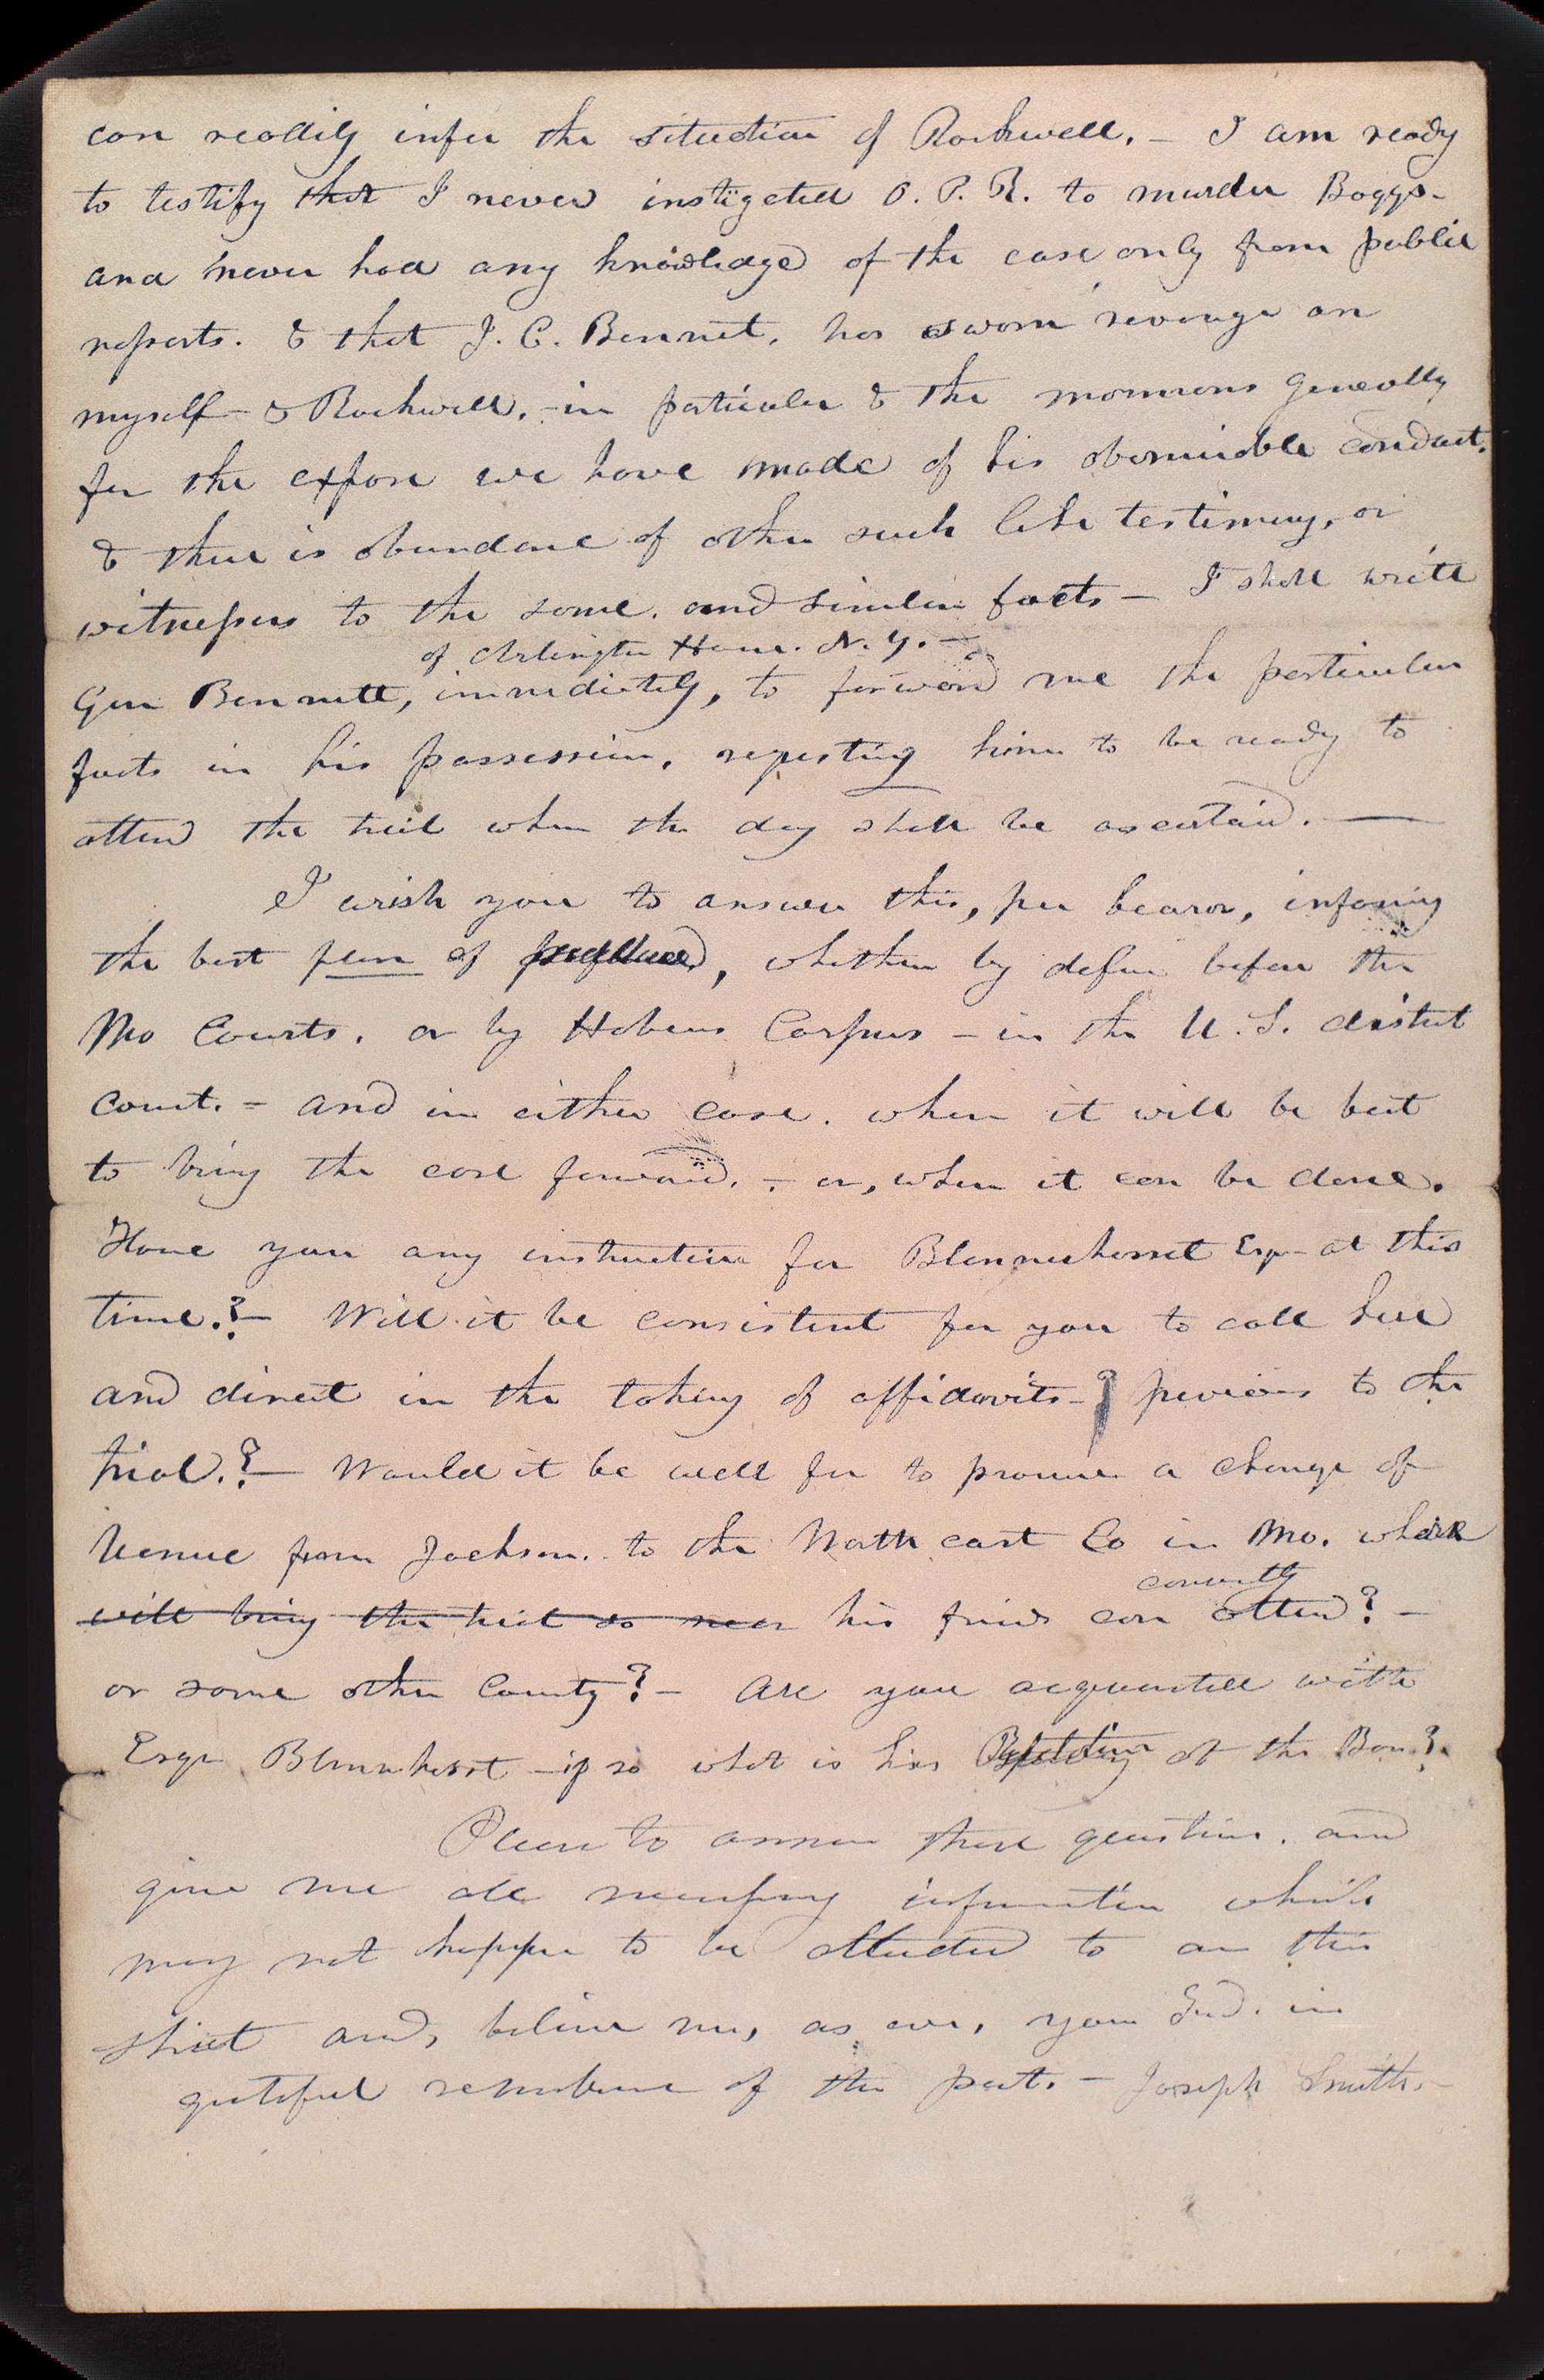 can readily infer the situation of Rockwell. — I am ready
to testify that I never instigated O. P. R. to murder Boggs—
and never had any knowledge of the case only from public
reports. & that J. C. Bennet, has sworn revenge on
myself — & Rockwell. — in particular & the mormons generally
for the expose we have made of his abominable conduct.
& there is abundance of other such like testimony, or
witnesses to the same. and similar facts — I shall write
of Arlington House. N. Y. —
Gen Bennett, immediately, to forward me the particular
facts in his possession, requesting him to be ready to
attend the trial when the day shall be ascertaind. —
I wish you to answer this, per bearer, infoming
the best plan of , whether by defence before the
Mo Courts, or by Habeus Corpus — in the U. S. district
court. — and in either case. when it will be best
to bring the case forward. — or, when it can be done.
Have you any instruction for Blennerhasset Esqr— at this
time.? — Will it be consistent for you to call here
and direct in the taking of affidavits —? previous to the
trial.? — Would it be well for to procure a change of
Venue from Jackson. to the North east Co in Mo. where
convently
will bring the trial so near his friends can attend? —
or some other County? — Are you acquainted with
Esqr Blennerhasst — if so what is his at the Bar?
Please to answer these questions. and
give me all necessary information which
may not happen to be attended to on this
sheet and, believe me, as ever, your Frd. in
grateful remembrance of the past. — Joseph Smith. —